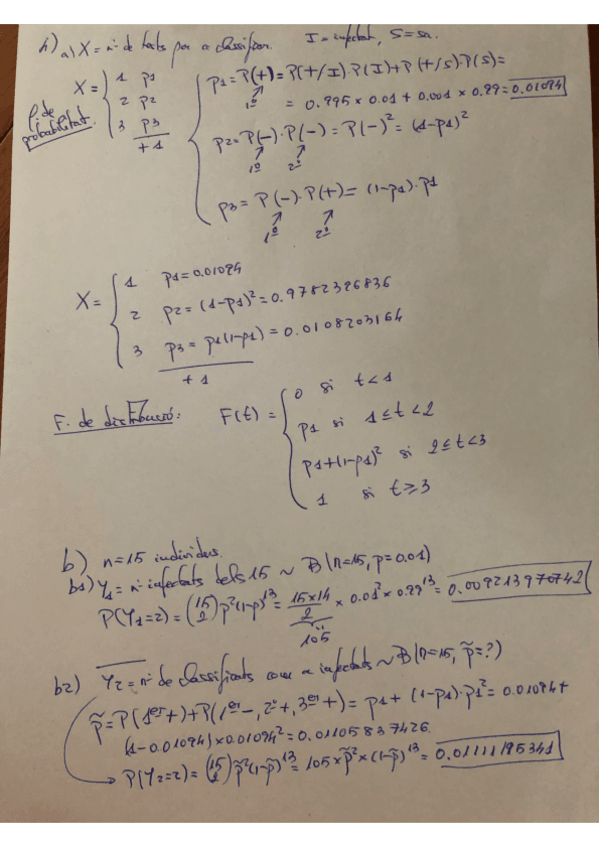 a) X = nº de tests per a classificar. I = infectat, S = sa.
F. de probabilitat.
X = { 1 p1
2 p2
3 p3
+ 1
p1 = P(+) = P(+/I)·P(I) + P(+/S)·P(S) =
1º
= 0.995 × 0.01 + 0.001 × 0.99 = 0.01094
p2 = P(-)·P(-) = P(-)² = (1-p1)²
1º 2º
p3 = P(-)·P(+) = (1-p1)·p1
1º 2º
X = { 1 p1 = 0.01094
2 p2 = (1-p1)² = 0.9782396836
3 p3 = p1(1-p1) = 0.0108203164
+ 1
F. de distribució: F(t) = { 0 si t<1
p1 si 1≤t<2
p1+(1-p1)² si 2≤t<3
1 si t≥3
b) n=15 individus.
b1) Y1 = nº infectats dels 15 ~ B(n=15, p=0.01)
P(Y1=2) = (15 2) p²(1-p)¹³ = 15×14/2 × 0.01² × 0.99¹³ = 0.009213970742
105
b2) Y2 = nº de classificats com a infectats ~ B(n=15, p̃=?)
p̃ = P(1er+) + P(1er-, 2º+, 3er+) = p1 + (1-p1)·p1² = 0.01094 +
(1-0.01094)×0.01094² = 0.01105837426.
→ P(Y2=2) = (15 2) p̃²(1-p̃)¹³ = 105×p̃²×(1-p̃)¹³ = 0.01111195341